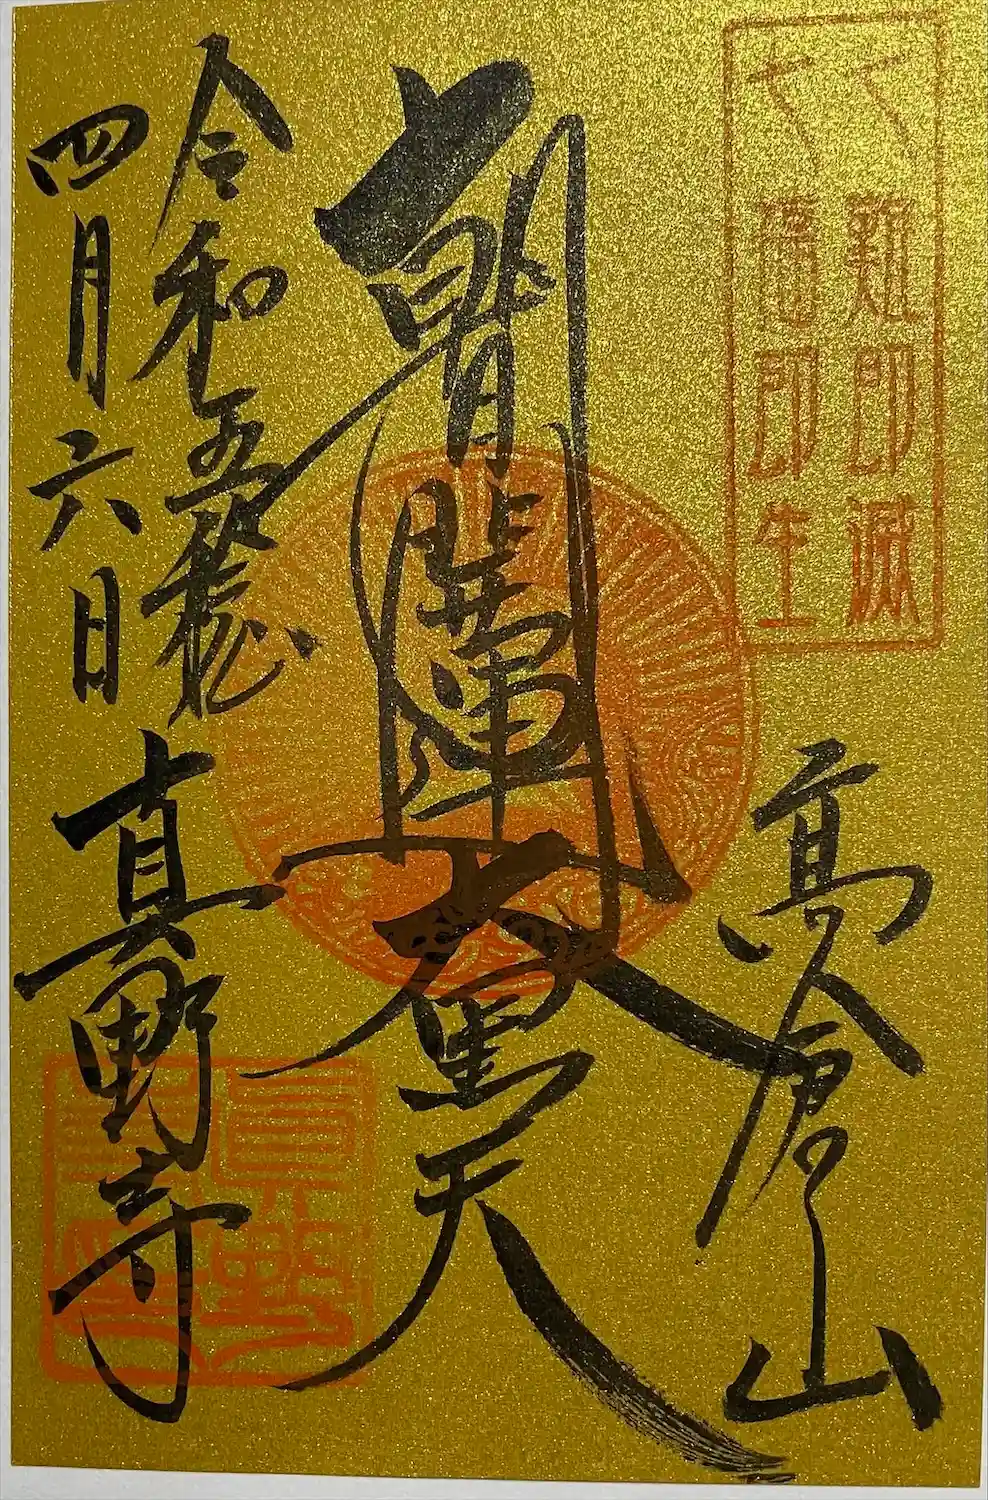 七難即滅
七福即生
高倉山
朝日開運大黒天
令和五歳
四月六日
真野寺